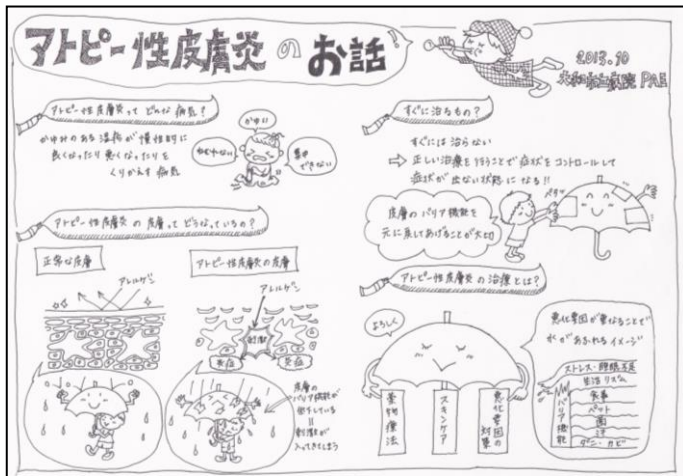 アトピー性皮膚炎のお話
2013.10
アトピー性皮膚炎って どんな病気?
かゆみのある湿疹が慢性的に
良くなったり悪くなったりを
くりかえす病気
かゆい
ねむれない
集中
できない
アトピー性皮膚炎の皮膚ってどうなっているの?
正常な皮膚
アレルゲン
アトピー性皮膚炎の皮膚
アレルゲン
刺激
炎症
炎症
皮膚の
バリア機能が
低下している
刺激が
入ってきてしまう
すぐに治るもの?
すぐには治らない
⇨ 正しい治療を行うことで症状をコントロールして
症状が出ない状態になる!!
ペタッ
皮膚のバリア機能を
元に戻してあげることが大切
アトピー性皮膚炎の治療とは?
よろしく
薬物療法
スキンケア
悪化要因の対策
悪化要因が重なることで
水があふれるイメージ
ストレス・睡眠不足
生活リズム
食事
ペット
菌
汗
ダニ・カビ
バリア機能